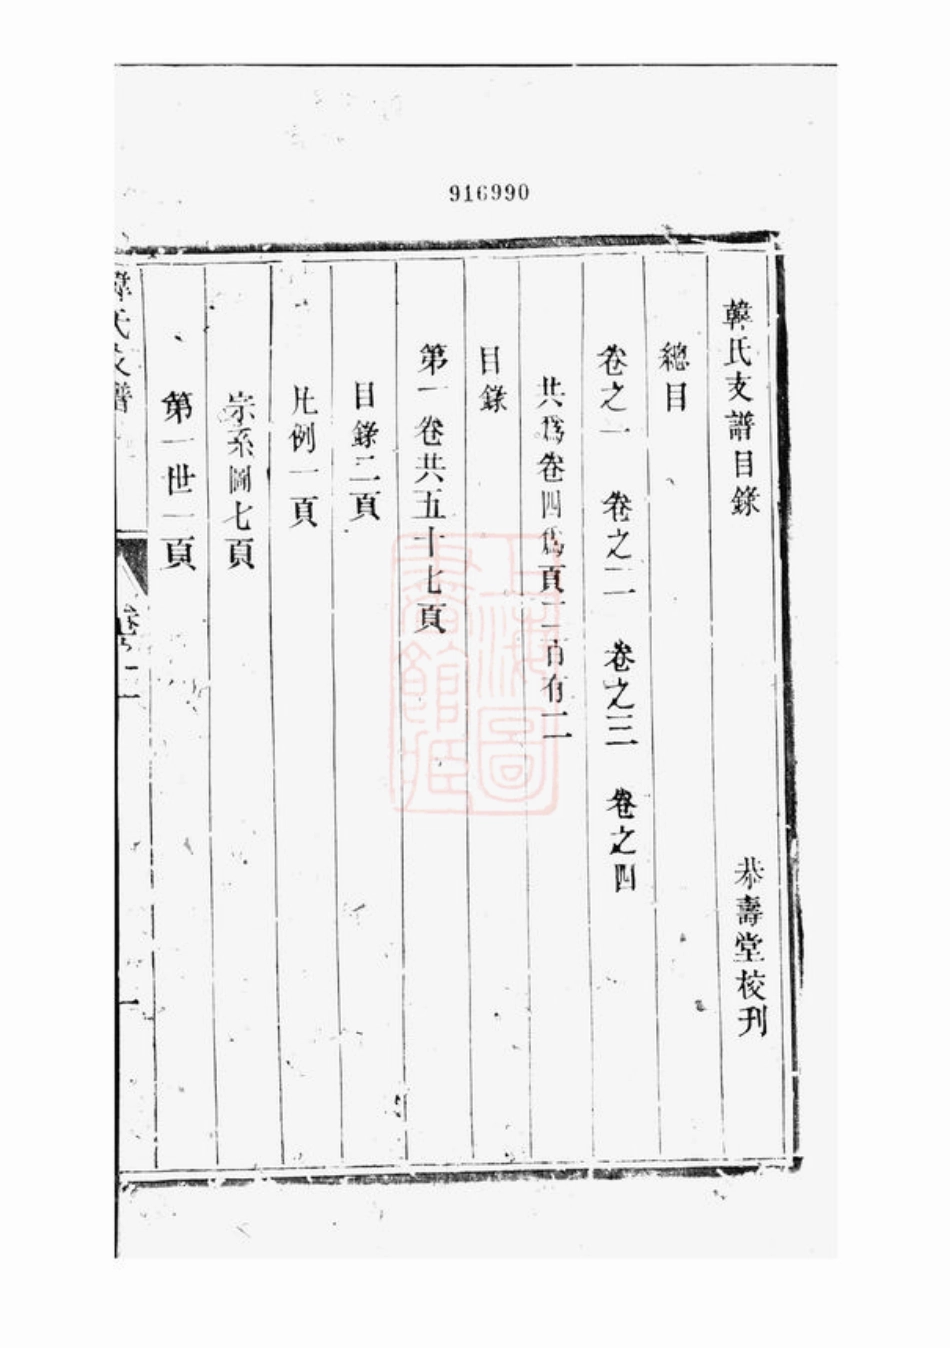 916990
韓氏支譜目錄 恭壽堂校刊
總目
卷之一 卷之二 卷之三 卷之四
共爲卷四爲頁二百有二
目錄
第一卷共五十七頁
目錄二頁
凡例一頁
宗系圖七頁
第一世一頁
韓氏支譜 卷一 一
上海圖書館藏